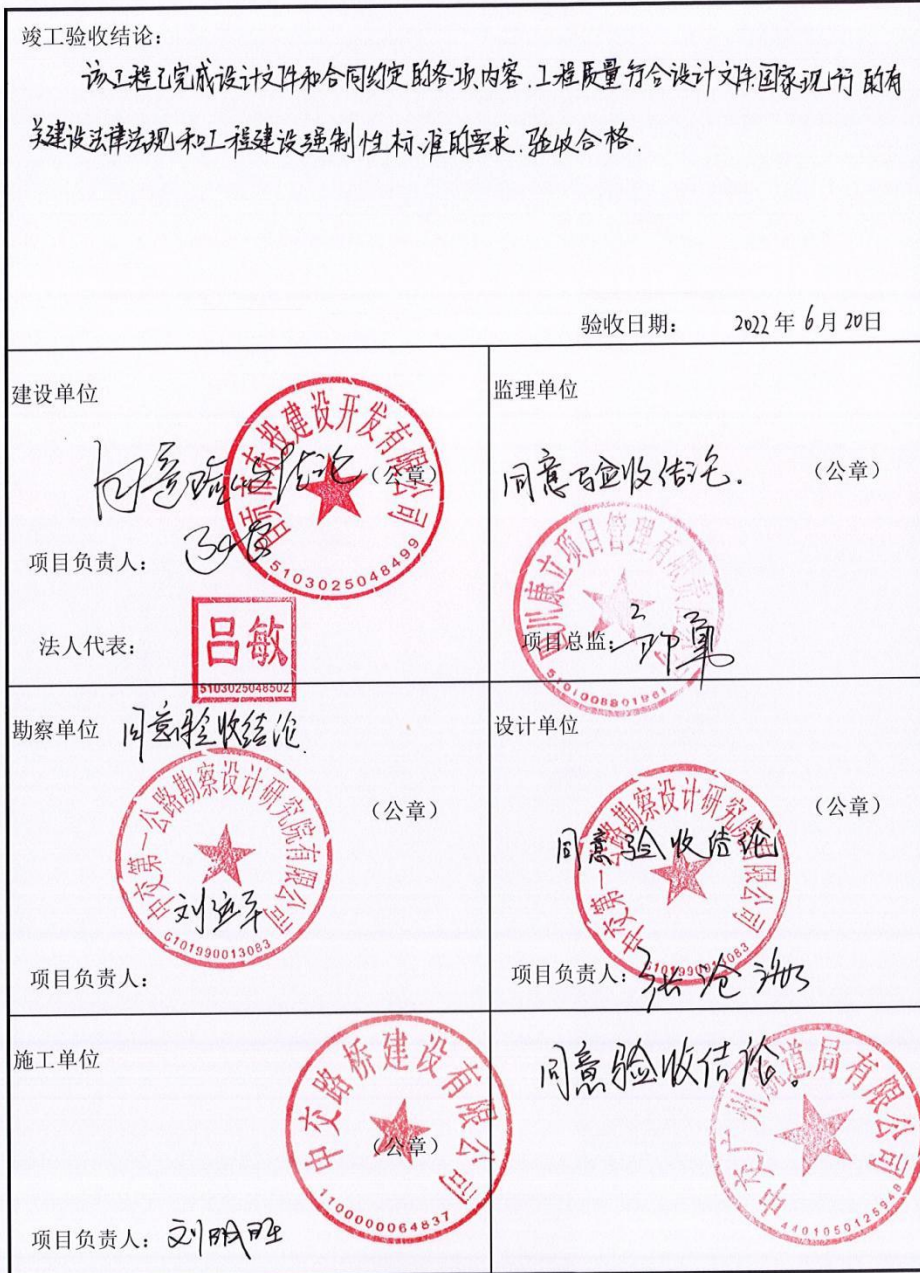 竣工验收结论:
该工程已完成设计文件和合同约定的各项内容.工程质量符合设计文件.国家现行的有
关建设法律法规和工程建设强制性标准的要求.验收合格.
验收日期: 2022年6月20日
建设单位
同意验收结论 (公章)
投建设开发有限公司
5103025048499
项目负责人:
法人代表:
吕敏
5103025048502
监理单位
同意验收结论. (公章)
四川康立项目管理有限责任公司
项目总监:
5101008801961
勘察单位 同意验收结论
(公章)
中交第一公路勘察设计研究院有限公司
6101990013083
项目负责人:
设计单位
(公章)
同意验收结论
中交第一公路勘察设计研究院有限公司
6101990013083
项目负责人:
施工单位
中交路桥建设有限公司
(公章)
1100000064837
项目负责人: 刘明旺
同意验收结论。
中交广州航道局有限公司
4401050125948